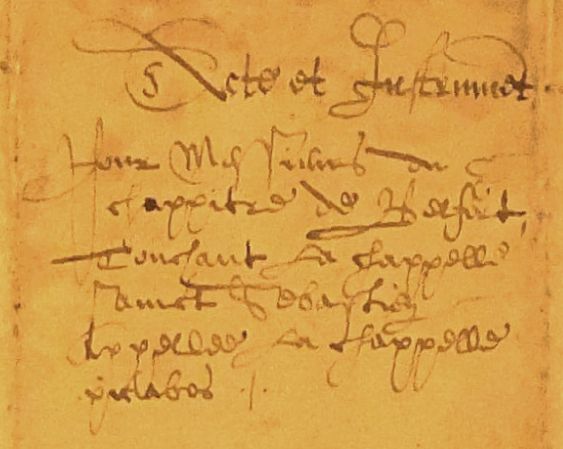 Acte et Instrument
Pour Messieurs du
chappitre de Belfort,
Touchant La chappelle
sainct Sebastien
Appellee La chappelle